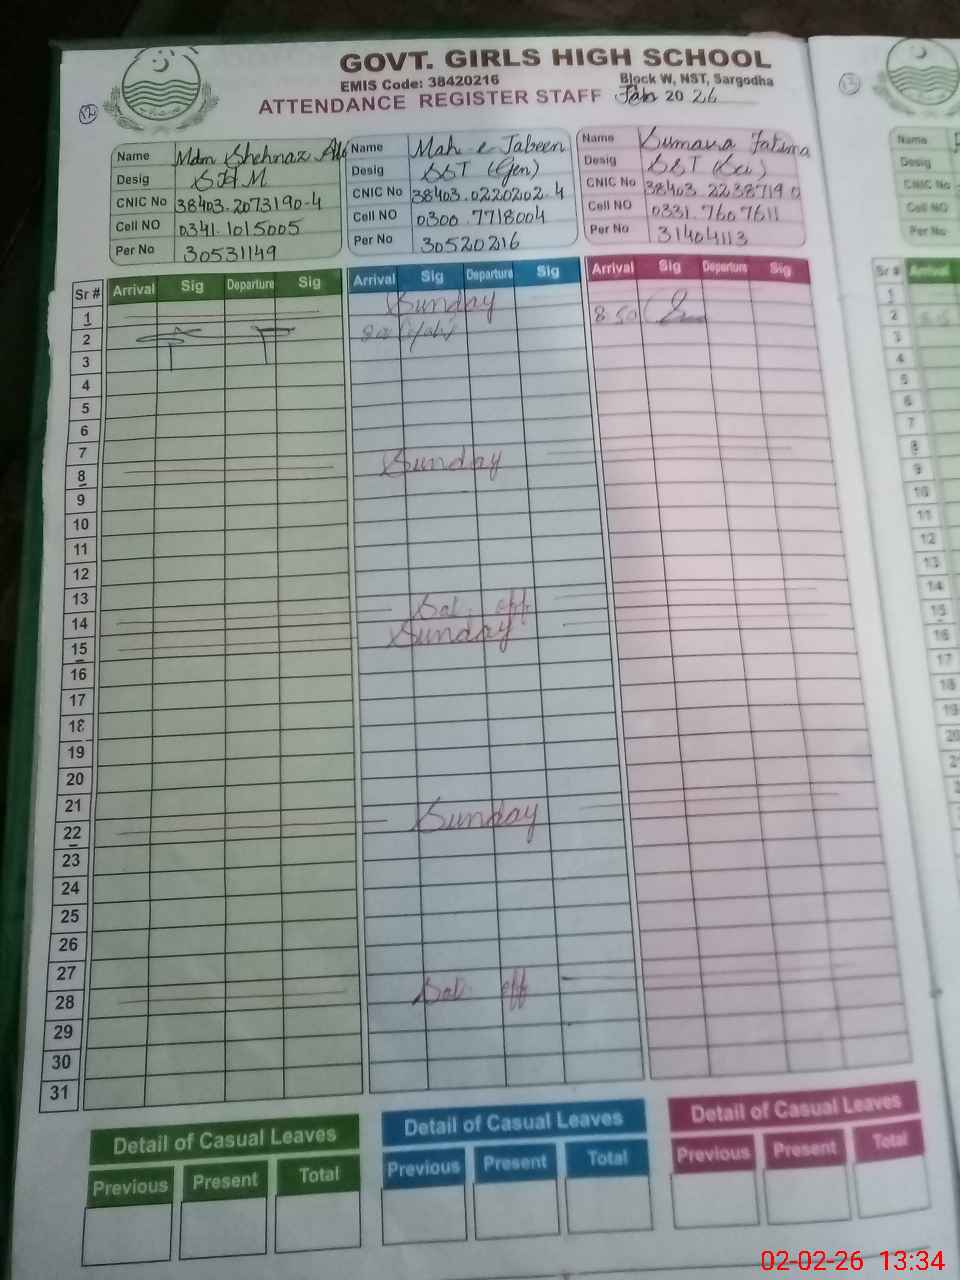 GOVT. GIRLS HIGH SCHOOL
EMIS Code: 38420216 Block W, NST, Sargodha
ATTENDANCE REGISTER STAFF 20 26
Name Mdm Shehnaz
Desig SHM
CNIC No 38403.2073190-4
Cell NO 0341.1015005
Per No 30531149
Name Mah e Jabeen
Desig SST (Gen)
CNIC No 38403.0220202.4
Cell NO 0300.7718004
Per No 30520216
Name Sumaira Fatima
Desig SST (Sci)
CNIC No 38403.2238719 0
Cell NO 0331.7607611
Per No 31404113
Sr # Arrival Sig Departure Sig Arrival Sig Departure Sig Arrival Sig Departure Sig
1 Sunday 8.50
2
3
4
5
6
7
8 Sunday
9
10
11
12
13
14 Sat. off
15 Sunday
16
17
18
19
20
21
22 Sunday
23
24
25
26
27
28 Sat. off
29
30
31
Detail of Casual Leaves
Previous Present Total
Detail of Casual Leaves
Previous Present Total
Detail of Casual Leaves
Previous Present Total
Name
Desig
CNIC No
Cell NO
Per No
Sr # Arrival
1
2
3
4
5
6
7
8
9
10
11
12
13
14
15
16
17
18
19
20
02-02-26 13:34